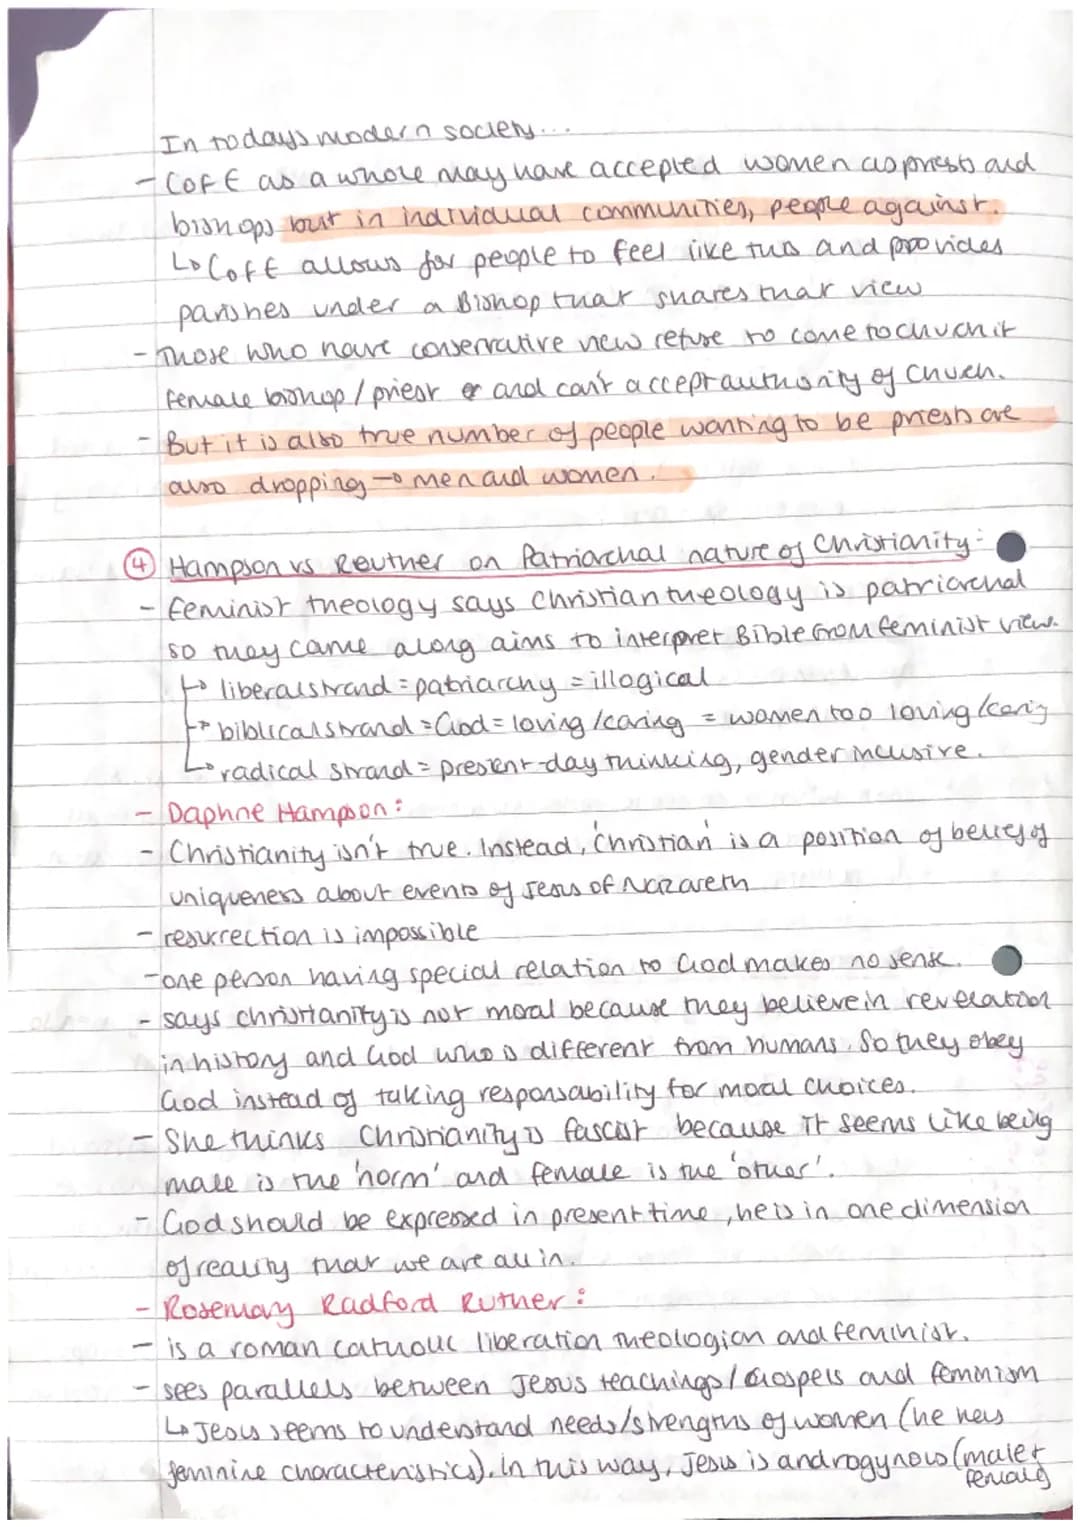 In todays modern society...
- CofE as a whole may have accepted women as priests and
bishops but in individual communities, people against.
↳ CofE allows for people to feel like this and provides
parishes under a Bishop that shares that view
- Those who have conservative view refuse to come to church if
female bishop / priest and can't accept authority of Church.
- But it is also true number of people wanting to be priests are
also dropping → men and women.
④ Hampson vs Reuther on Patriarchal nature of Christianity:
- feminist theology says Christian theology is patriarchal
so they came along aims to interpret Bible from feminist view.
↳ liberal strand = patriarchy = illogical
↳ biblical strand = God = loving / caring = women too loving / caring
↳ radical strand = present-day thinking, gender inclusive.
- Daphne Hampson:
- Christianity isn't true. Instead, 'Christian' is a position of belief of
uniqueness about events of Jesus of Nazareth
- resurrection is impossible
- one person having special relation to God makes no sense.
- says christianity is not moral because they believe in revelation
in history and God who is different from humans. So they obey
God instead of taking responsability for moral choices.
- She thinks Christianity is fascist because it seems like being
male is the 'norm' and female is the 'other'.
- God should be expressed in present time, he is in one dimension
of reality that we are all in.
- Rosemary Radford Ruther:
- is a roman catholic liberation theologian and feminist.
- sees parallels between Jesus teachings / Gospels and feminism
↳ Jesus seems to understand needs/strengths of women (he has
feminine characteristics). In this way, Jesus is androgynous (male +
female)